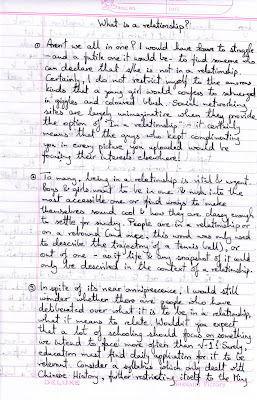 What is a relationship?!
① Aren't we all in one? I would have to struggle
- and a futile one it would be - to find someone who
can declare that she is not in a relationship.
Certainly, I do not restrict myself to the narrow
kinds that a young girl would confess to submerged
in giggles and coloured blush. Social networking
sites are largely unimaginative when they provide
the option of "In a relationship" - it certainly
means that the guys who kept complimenting
you in every picture you uploaded would be
focusing their interests elsewhere!
② To many, being in a relationship is vital & urgent.
Boys & girls want to be in one & rush into the
most accessible one or find ways to make
themselves sound cool & how they are classy enough
to settle for sundry. People are in a relationship or
on a rebound (and once, this word was only used
to describe the trajectory of a tennis ball), or
out of one - as if life & any snapshot of it could
only be described in the context of a relationship.
③ In spite of its near omnipresence, I would still
wonder whether there are people who have
deliberated over what it is to be in a relationship,
what it means to relate. Wouldn't you expect
that a lot of schooling should focus on something
we intend to face more often than √-1! Surely,
education must find daily application for it to be
relevant. Consider a syllabus which only dealt with
Chinese History, further restricting itself to the Ming
DELUXE